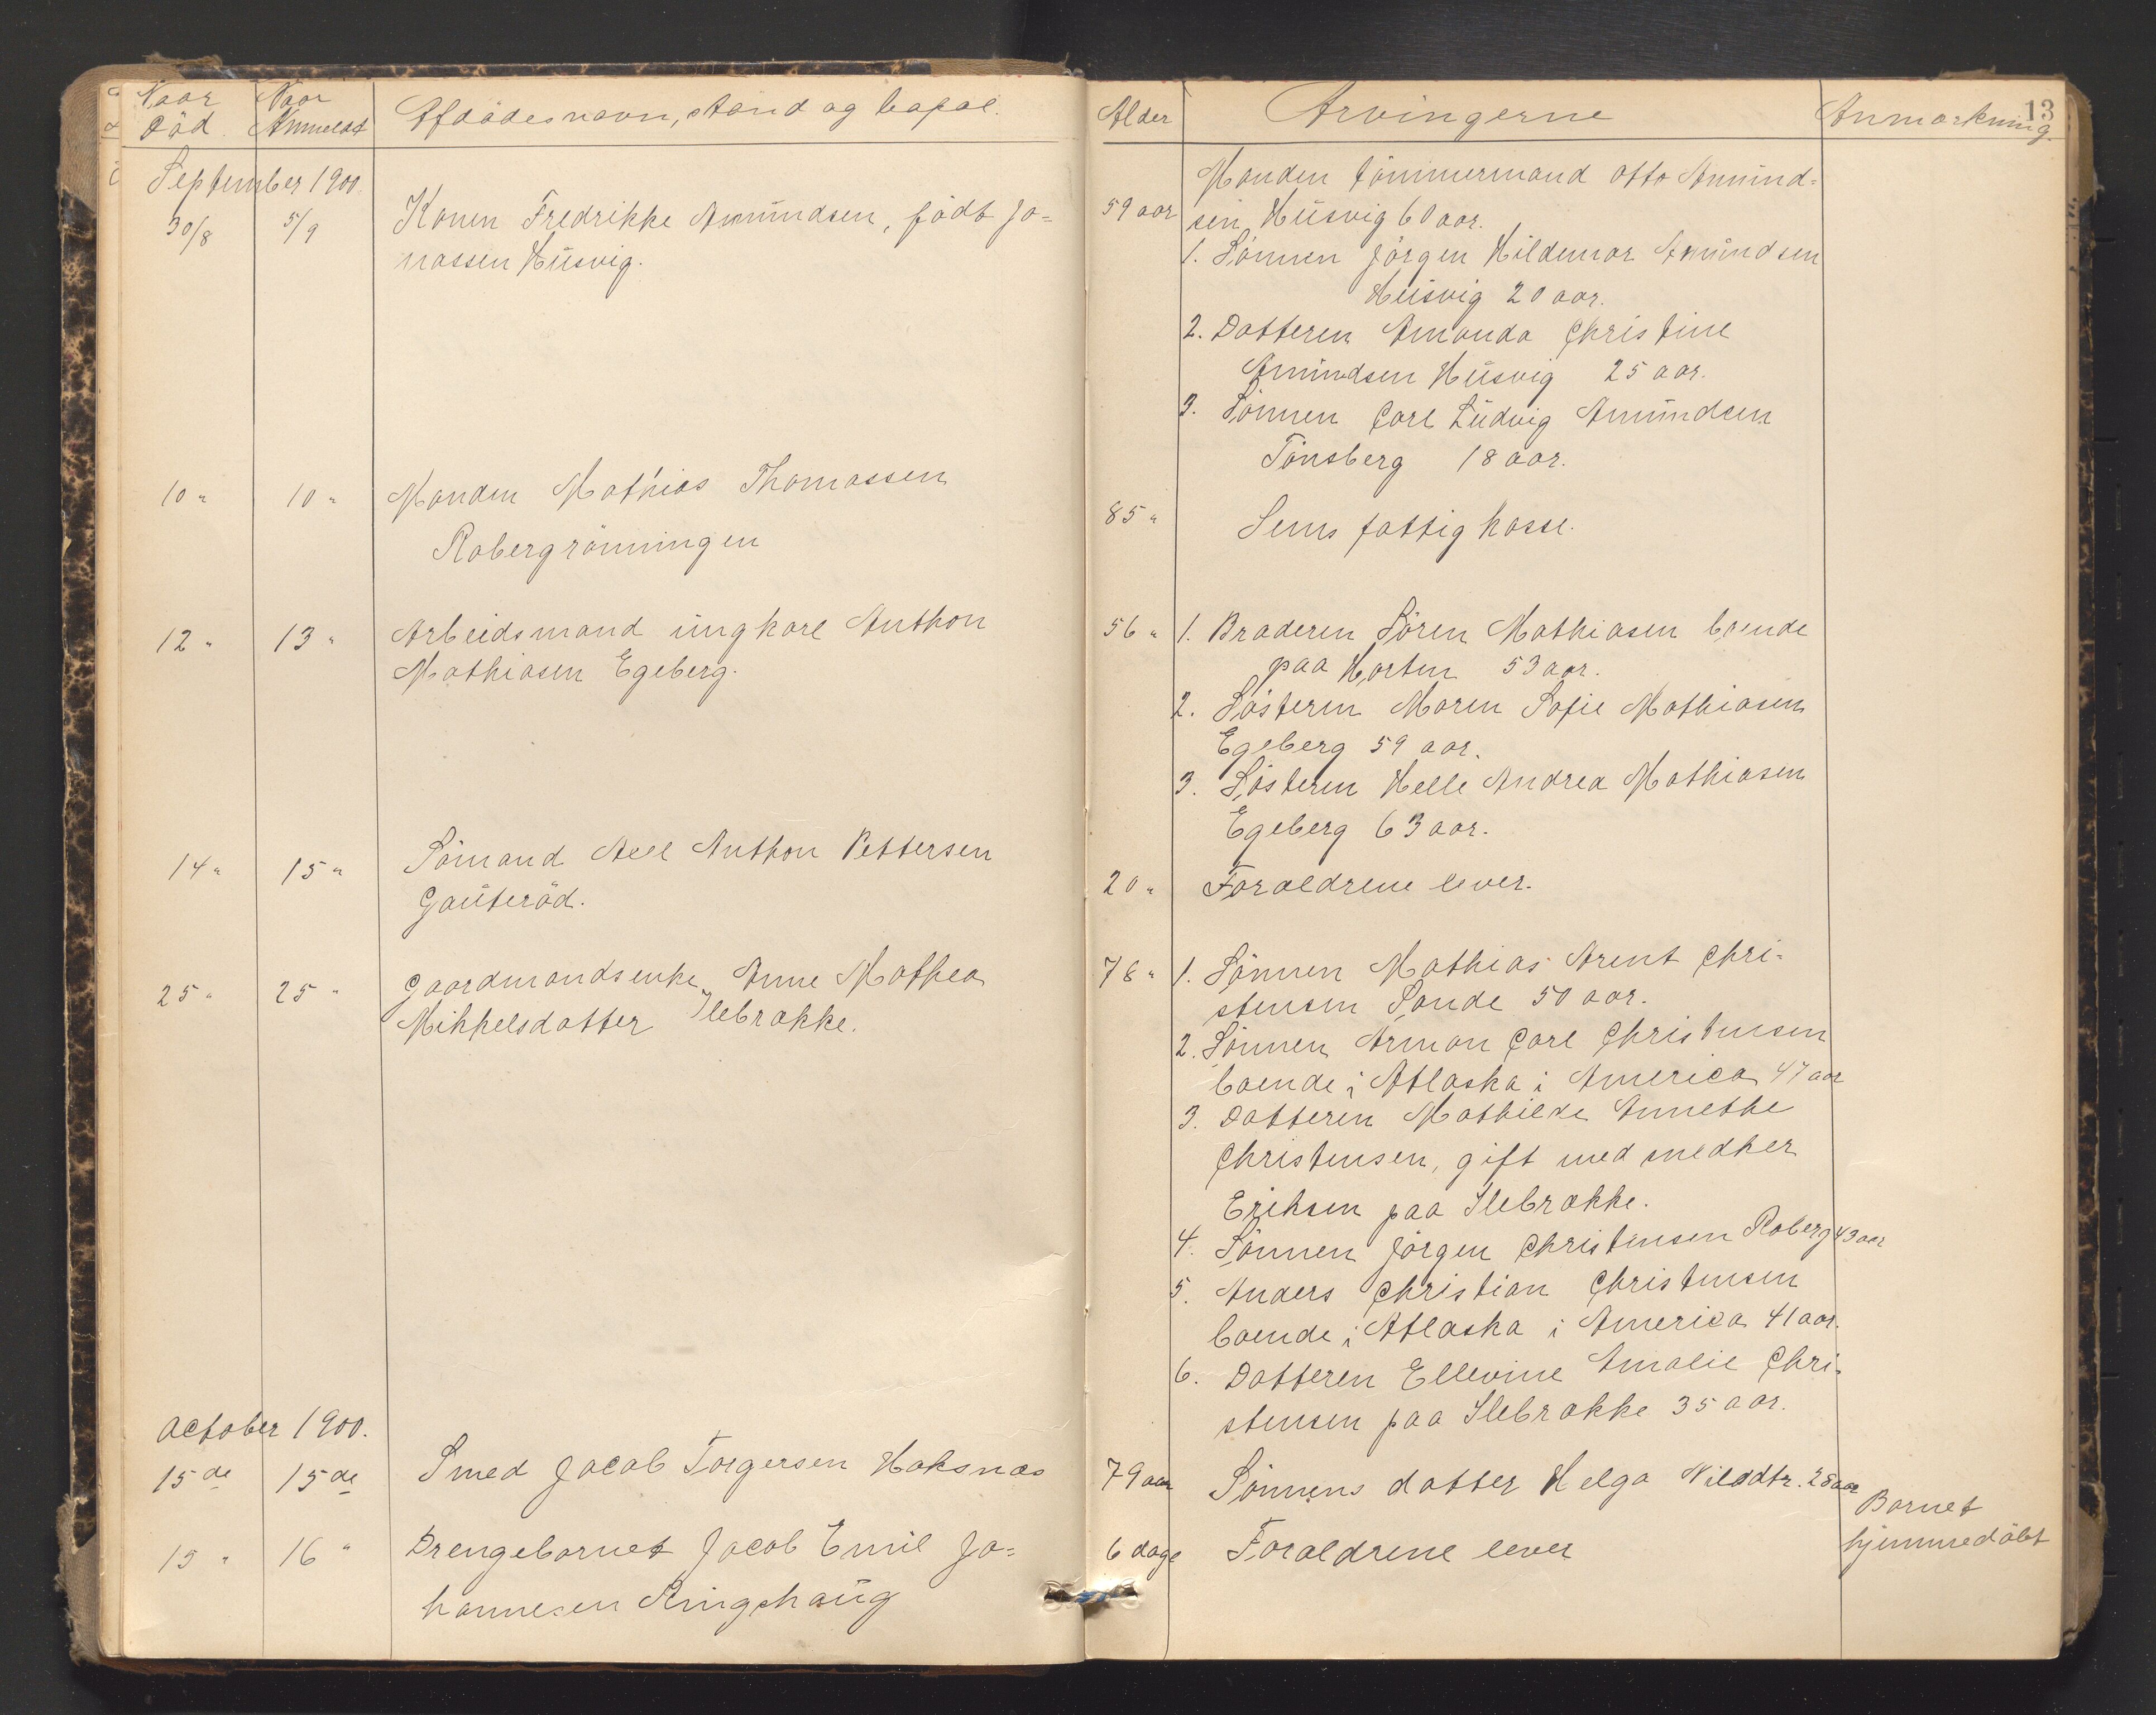 Naar Död.
Naar Anmeldt
Afdödes navn, stand og bopæl.
Alder
Arvingerne
Anmærkning.
13
September 1900.
30/8 5/9 Konen Fredrikke Amundsen, född Jo-
nassen Husvig.
59 aar
Manden Tömmermand Otto Amund-
sen Husvig 60 aar.
1. Sönnen Jörgen Hildemar Amundsen
Husvig 20 aar.
2. Datteren Amanda Christine
Amundsen Husvig 25 aar.
3. Sönnen Carl Ludvig Amundsen
Tönsberg 18 aar.
10 " 10 " Manden Mathias Thomassen
Robergrönningen
85 " Sems fattigkasse.
12 " 13 " Arbeidsmand ungkarl Anthon
Mathiasen Egeberg.
56 " 1. Broderen Sören Mathiasen boende
paa Horten 53 aar.
2. Sösteren Maren Sofie Mathiasen
Egeberg 59 aar.
3. Sösteren Helle Andrea Mathiasen
Egeberg 63 aar.
14 " 15 " Sömand Axel Anthon Pettersen
Gauteröd.
20 " Forældrene lever.
25 " 25 " Gaardmandsenke Anne Mathea
Mikkelsdatter Ilebrække.
78 " 1. Sönnen Mathias Arent Chri-
stensen Sande 50 aar.
2. Sönnen Arman Carl Christensen
boende i Atlaska i America 47 aar
3. Datteren Mathilde Annethe
Christensen, gift med snedker
Eriksen paa Ilebrække.
4. Sönnen Jörgen Christensen Roberg 43 aar
5. Anders Christian Christensen
boende i Atlaska i America 41 aar.
6. Datteren Ellevine Amalie Chri-
stensen paa Ilebrække 35 aar.
October 1900.
15de 15de Smed Jacob Torgersen Haksnæs
79 aar Sönnens datter Helga Hilddtr. 28 aar
15 " 16 " Drengebarnet Jacob Emil Jo-
hannesen Ringshaug
6 dage Forældrene lever
Barnet
hjemmedöbt